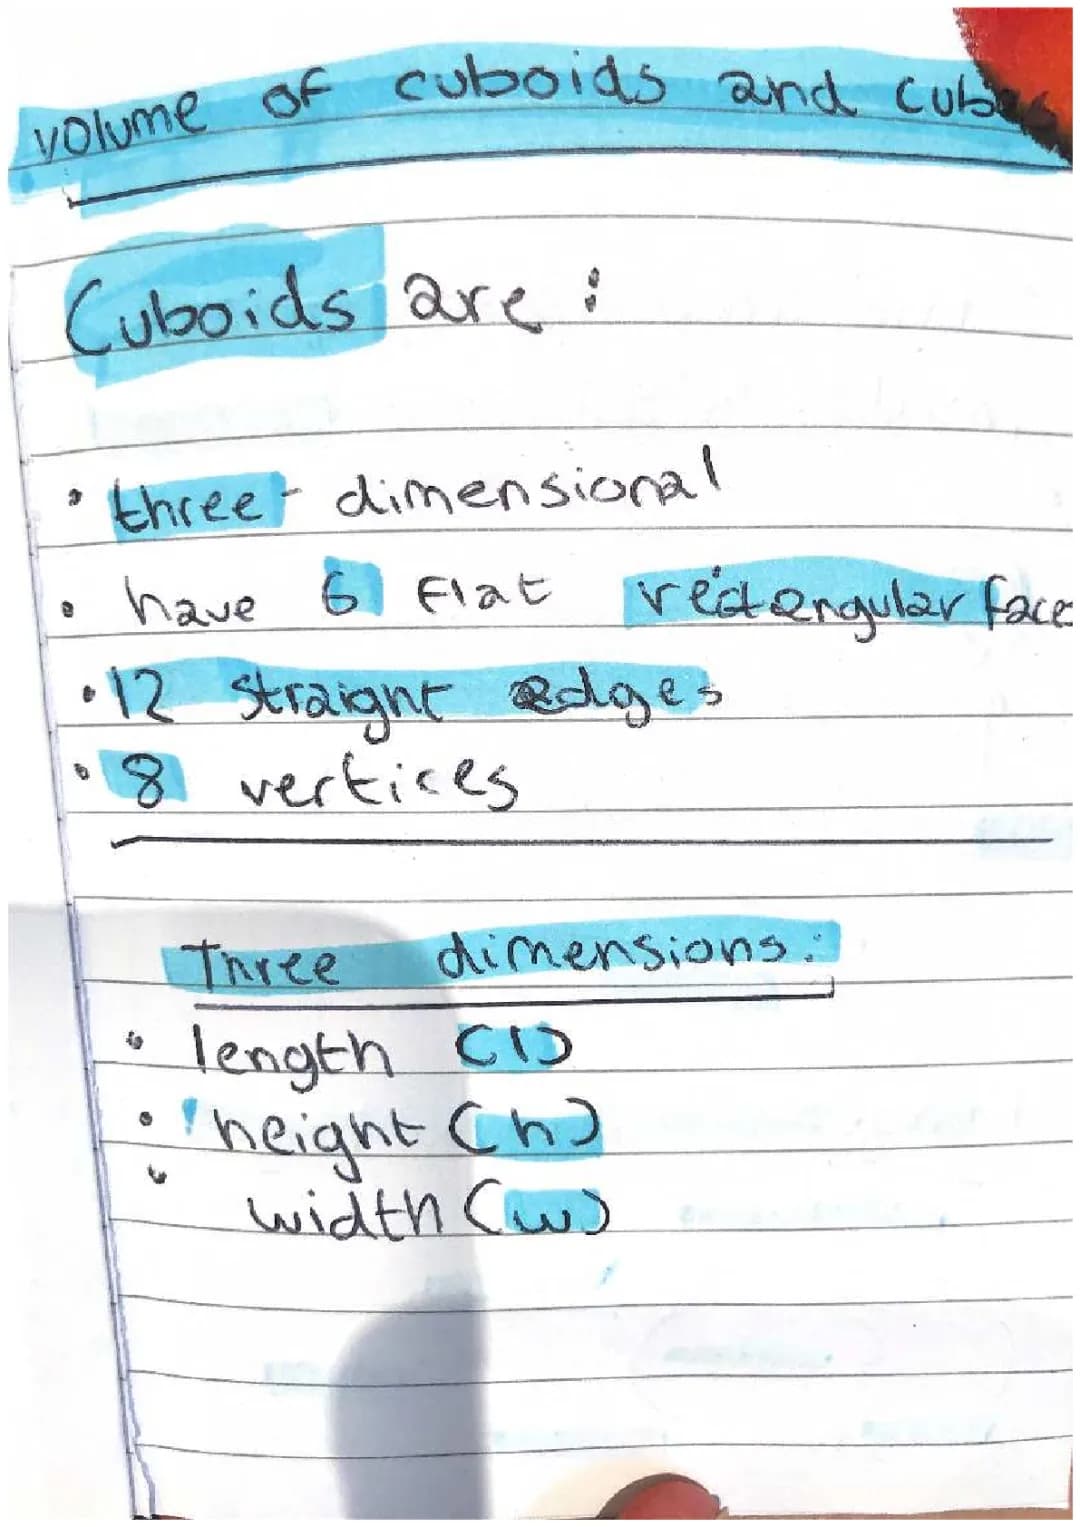 volume of cuboids and cubes
Cuboids are :
• three - dimensional
• have 6 flat rectengular faces
• 12 straight edges
• 8 vertices
Three dimensions:
• length (l)
• height (h)
• width (w)